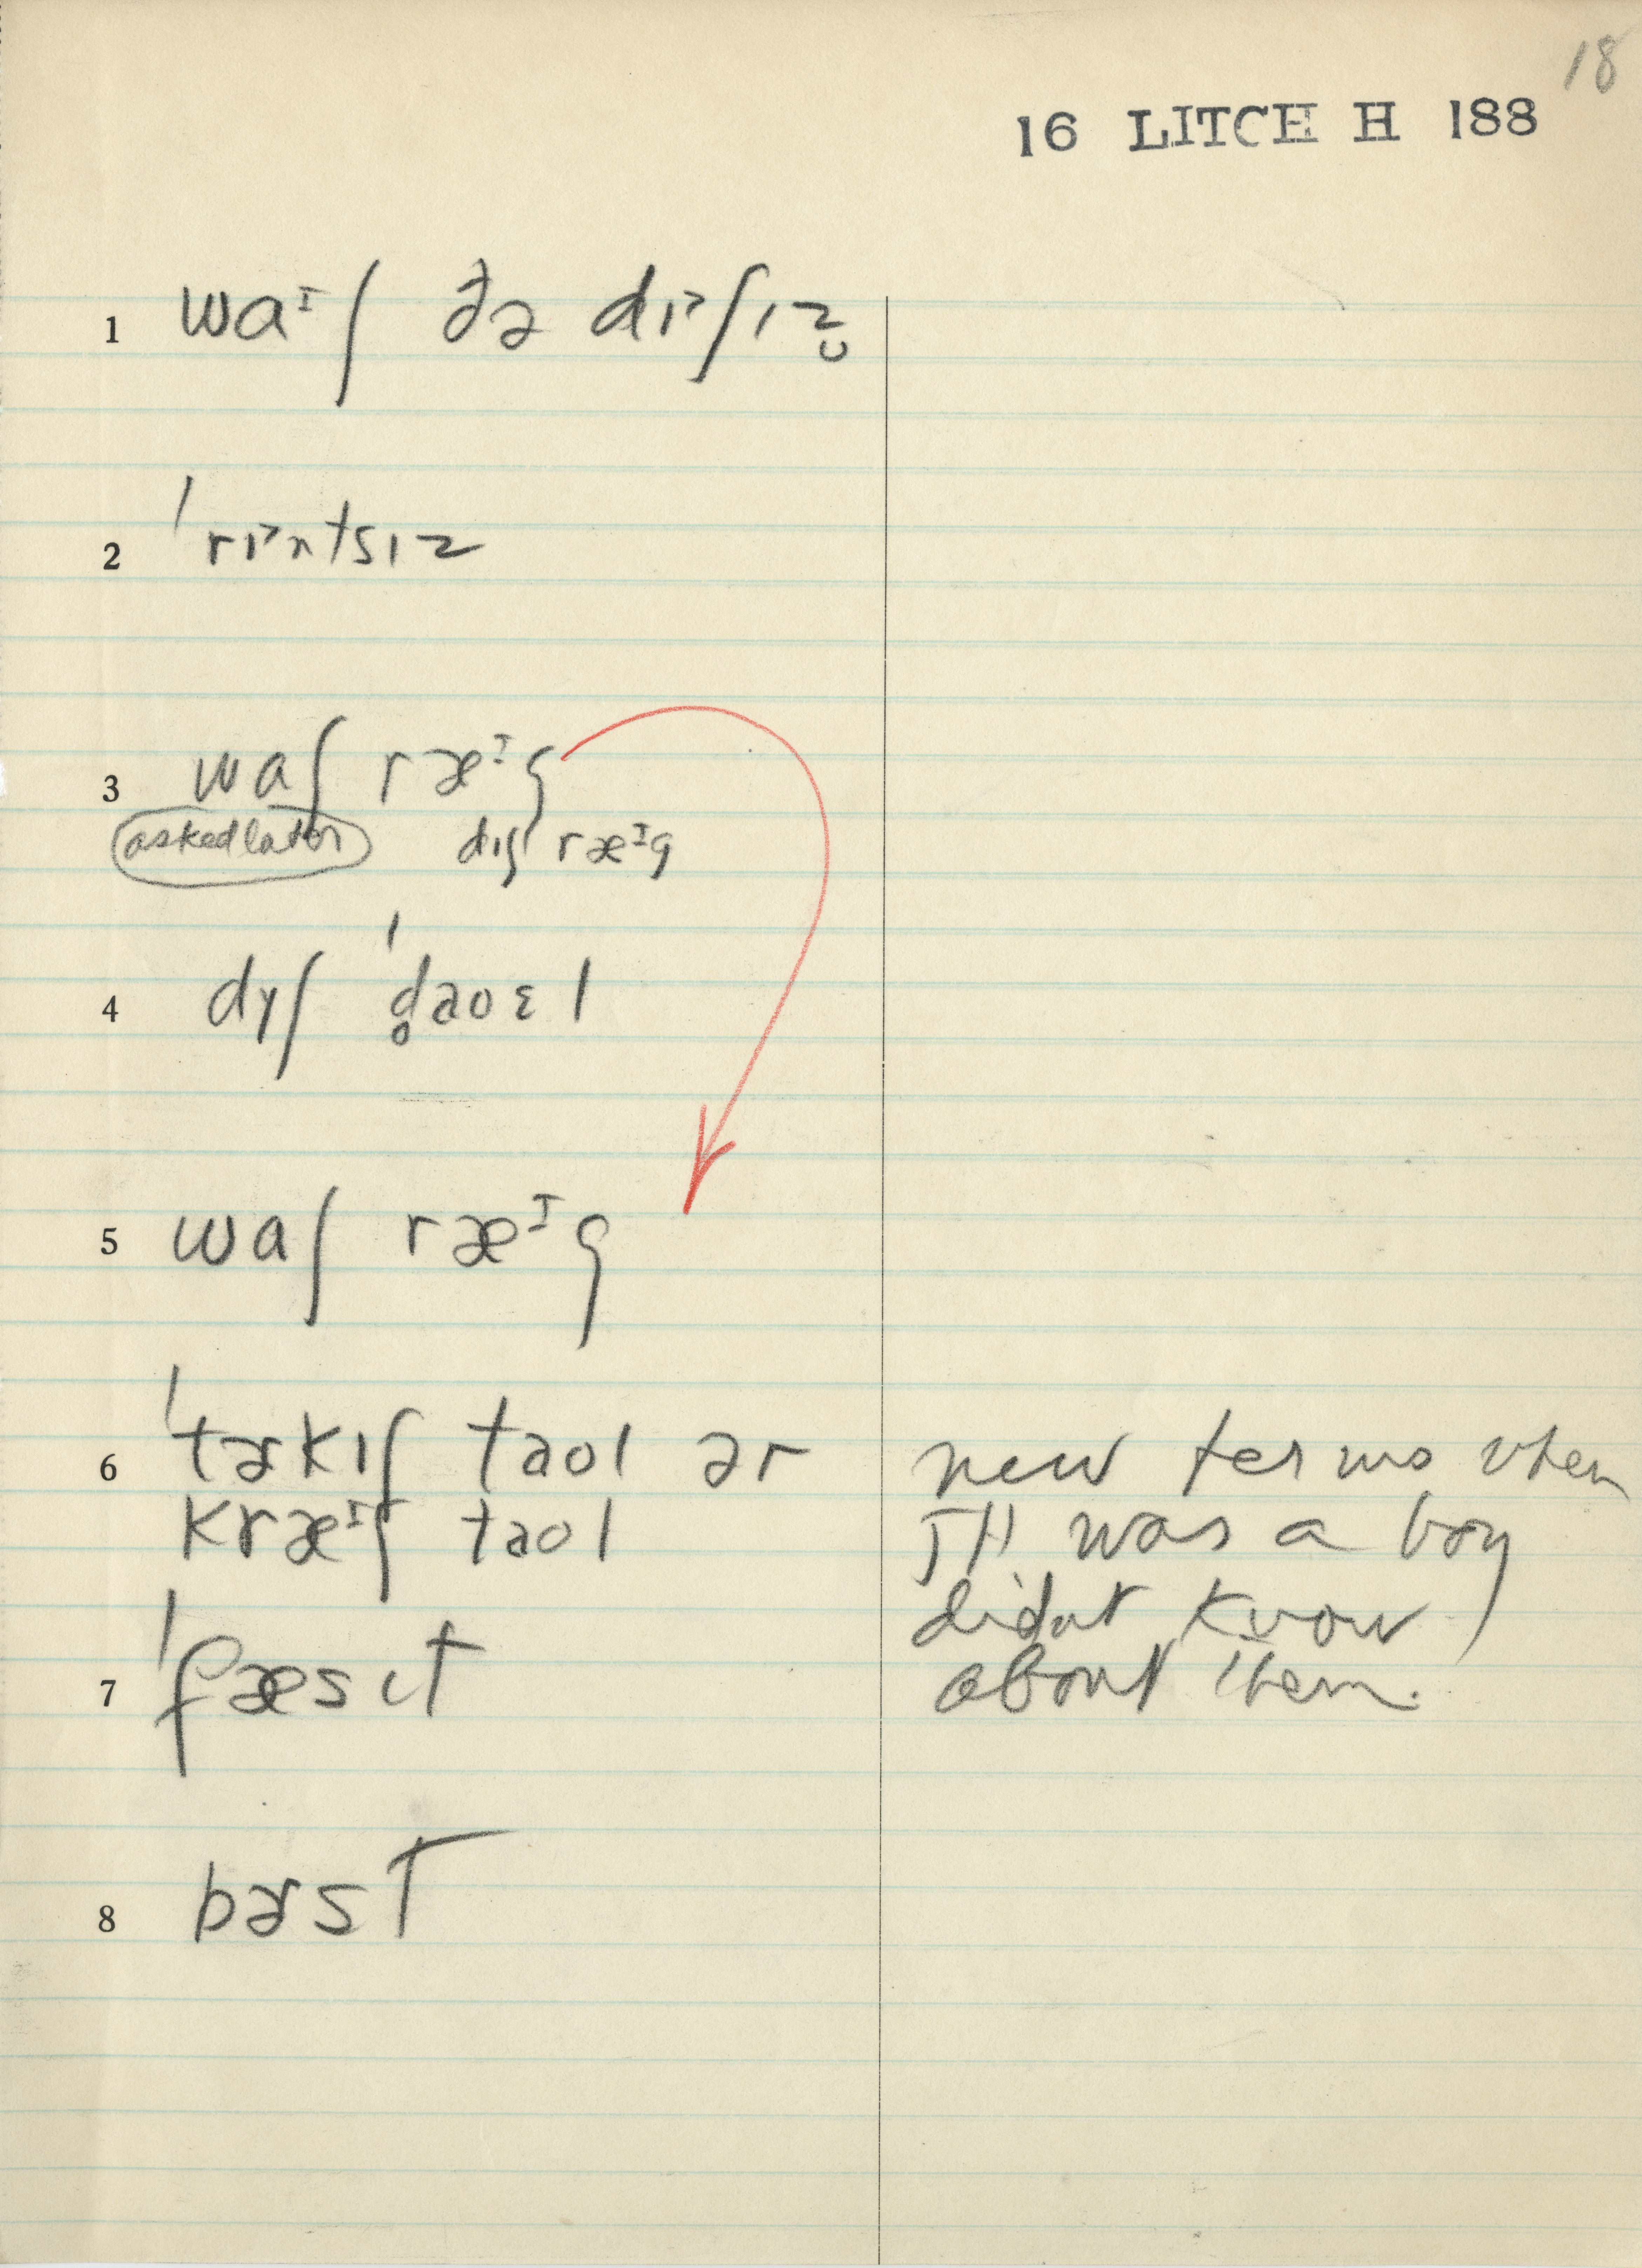 18
16 LITCH H 188
1 waᶦʃ ðə dɪ˃ʃɪz̬
2 ˈrɪ˃ntsɪz
3 waʃ ræᶦg
asked later dɪʃ ræᶦg
4 dyʃ ˈd̥aoɛl
5 waʃ ræᶦg
6 ˈtɚkɪʃ taol ər
kræᶦʃ taol
7 ˈfæsɪt
8 bɚst
new terms when
JH was a boy
didnt know
about them.